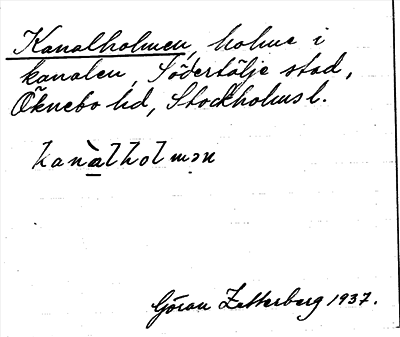 Kanalholmen, holme i
kanalen, Södertälje stad,
Öknebo hd, Stockholms l.
kanàlholmən
Göran Zetterberg 1937.